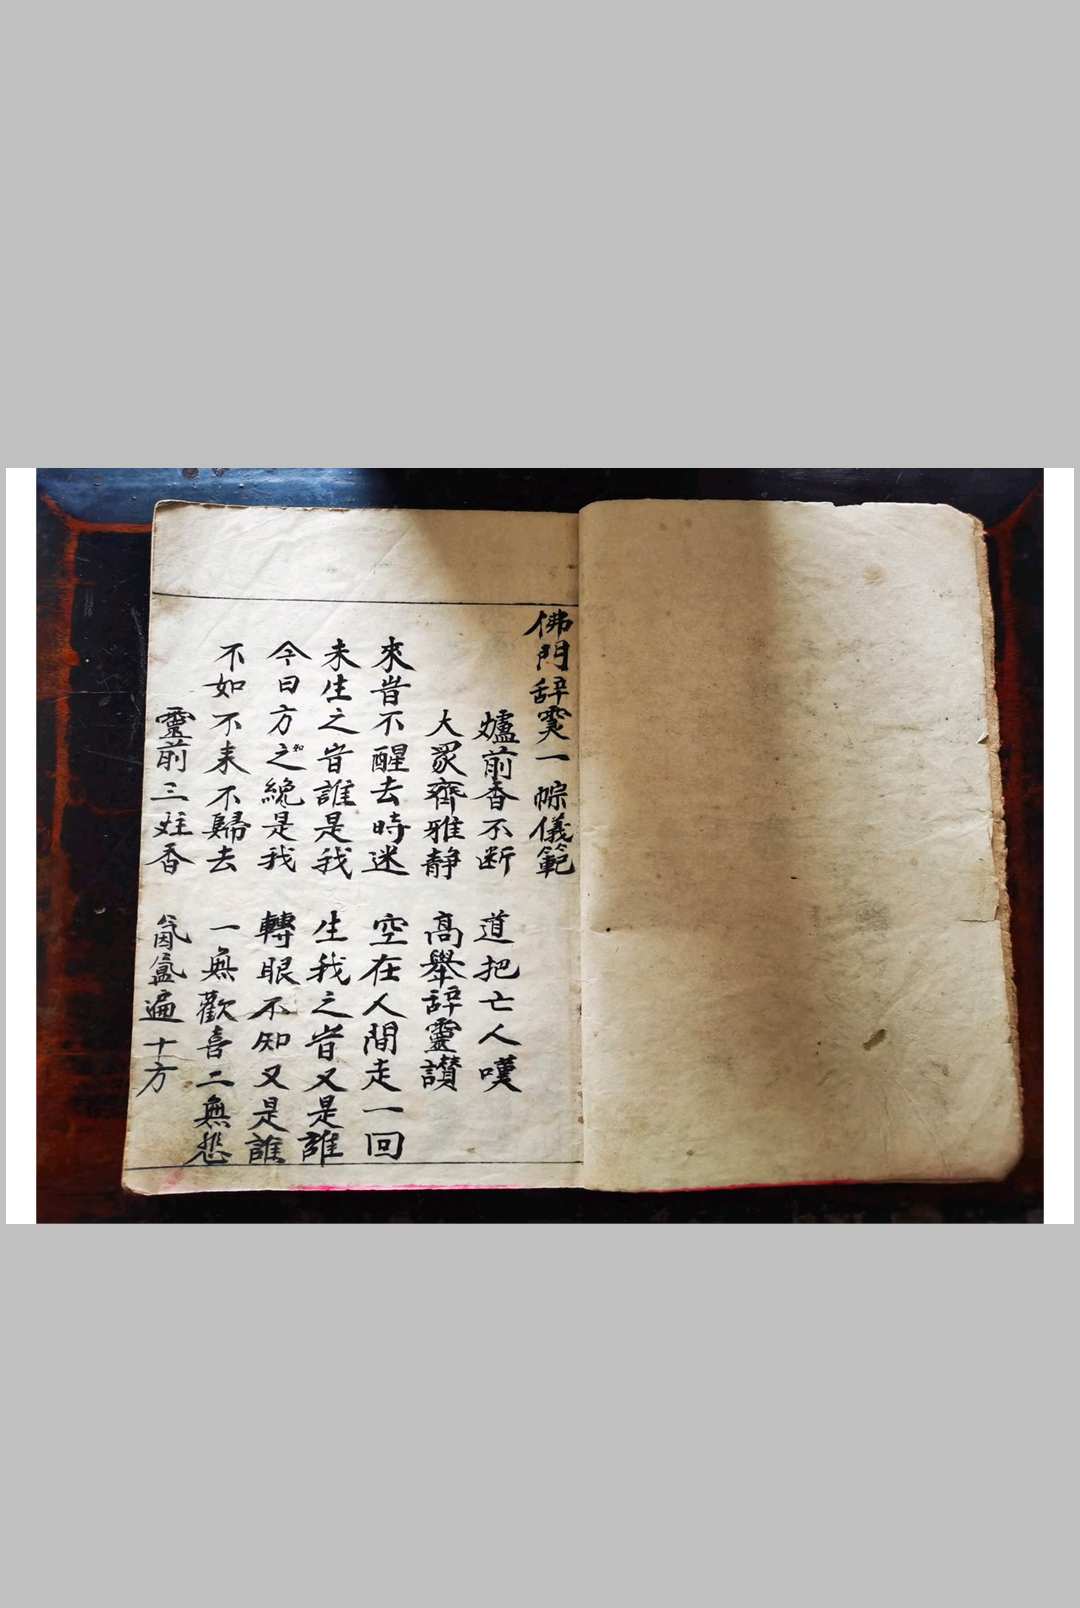 佛門辞霊一悰儀範
爐前香不断 道把亡人嘆
大眾齊雅静 高舉辞靈讃
來旹不醒去時迷 空在人間走一回
未生之旹誰是我 生我之旹又是誰
今日方知之纔是我 轉眼不知又是誰
不如不来不歸去 一無歡喜二無愁
靈前三炷香 氤氳遍十方